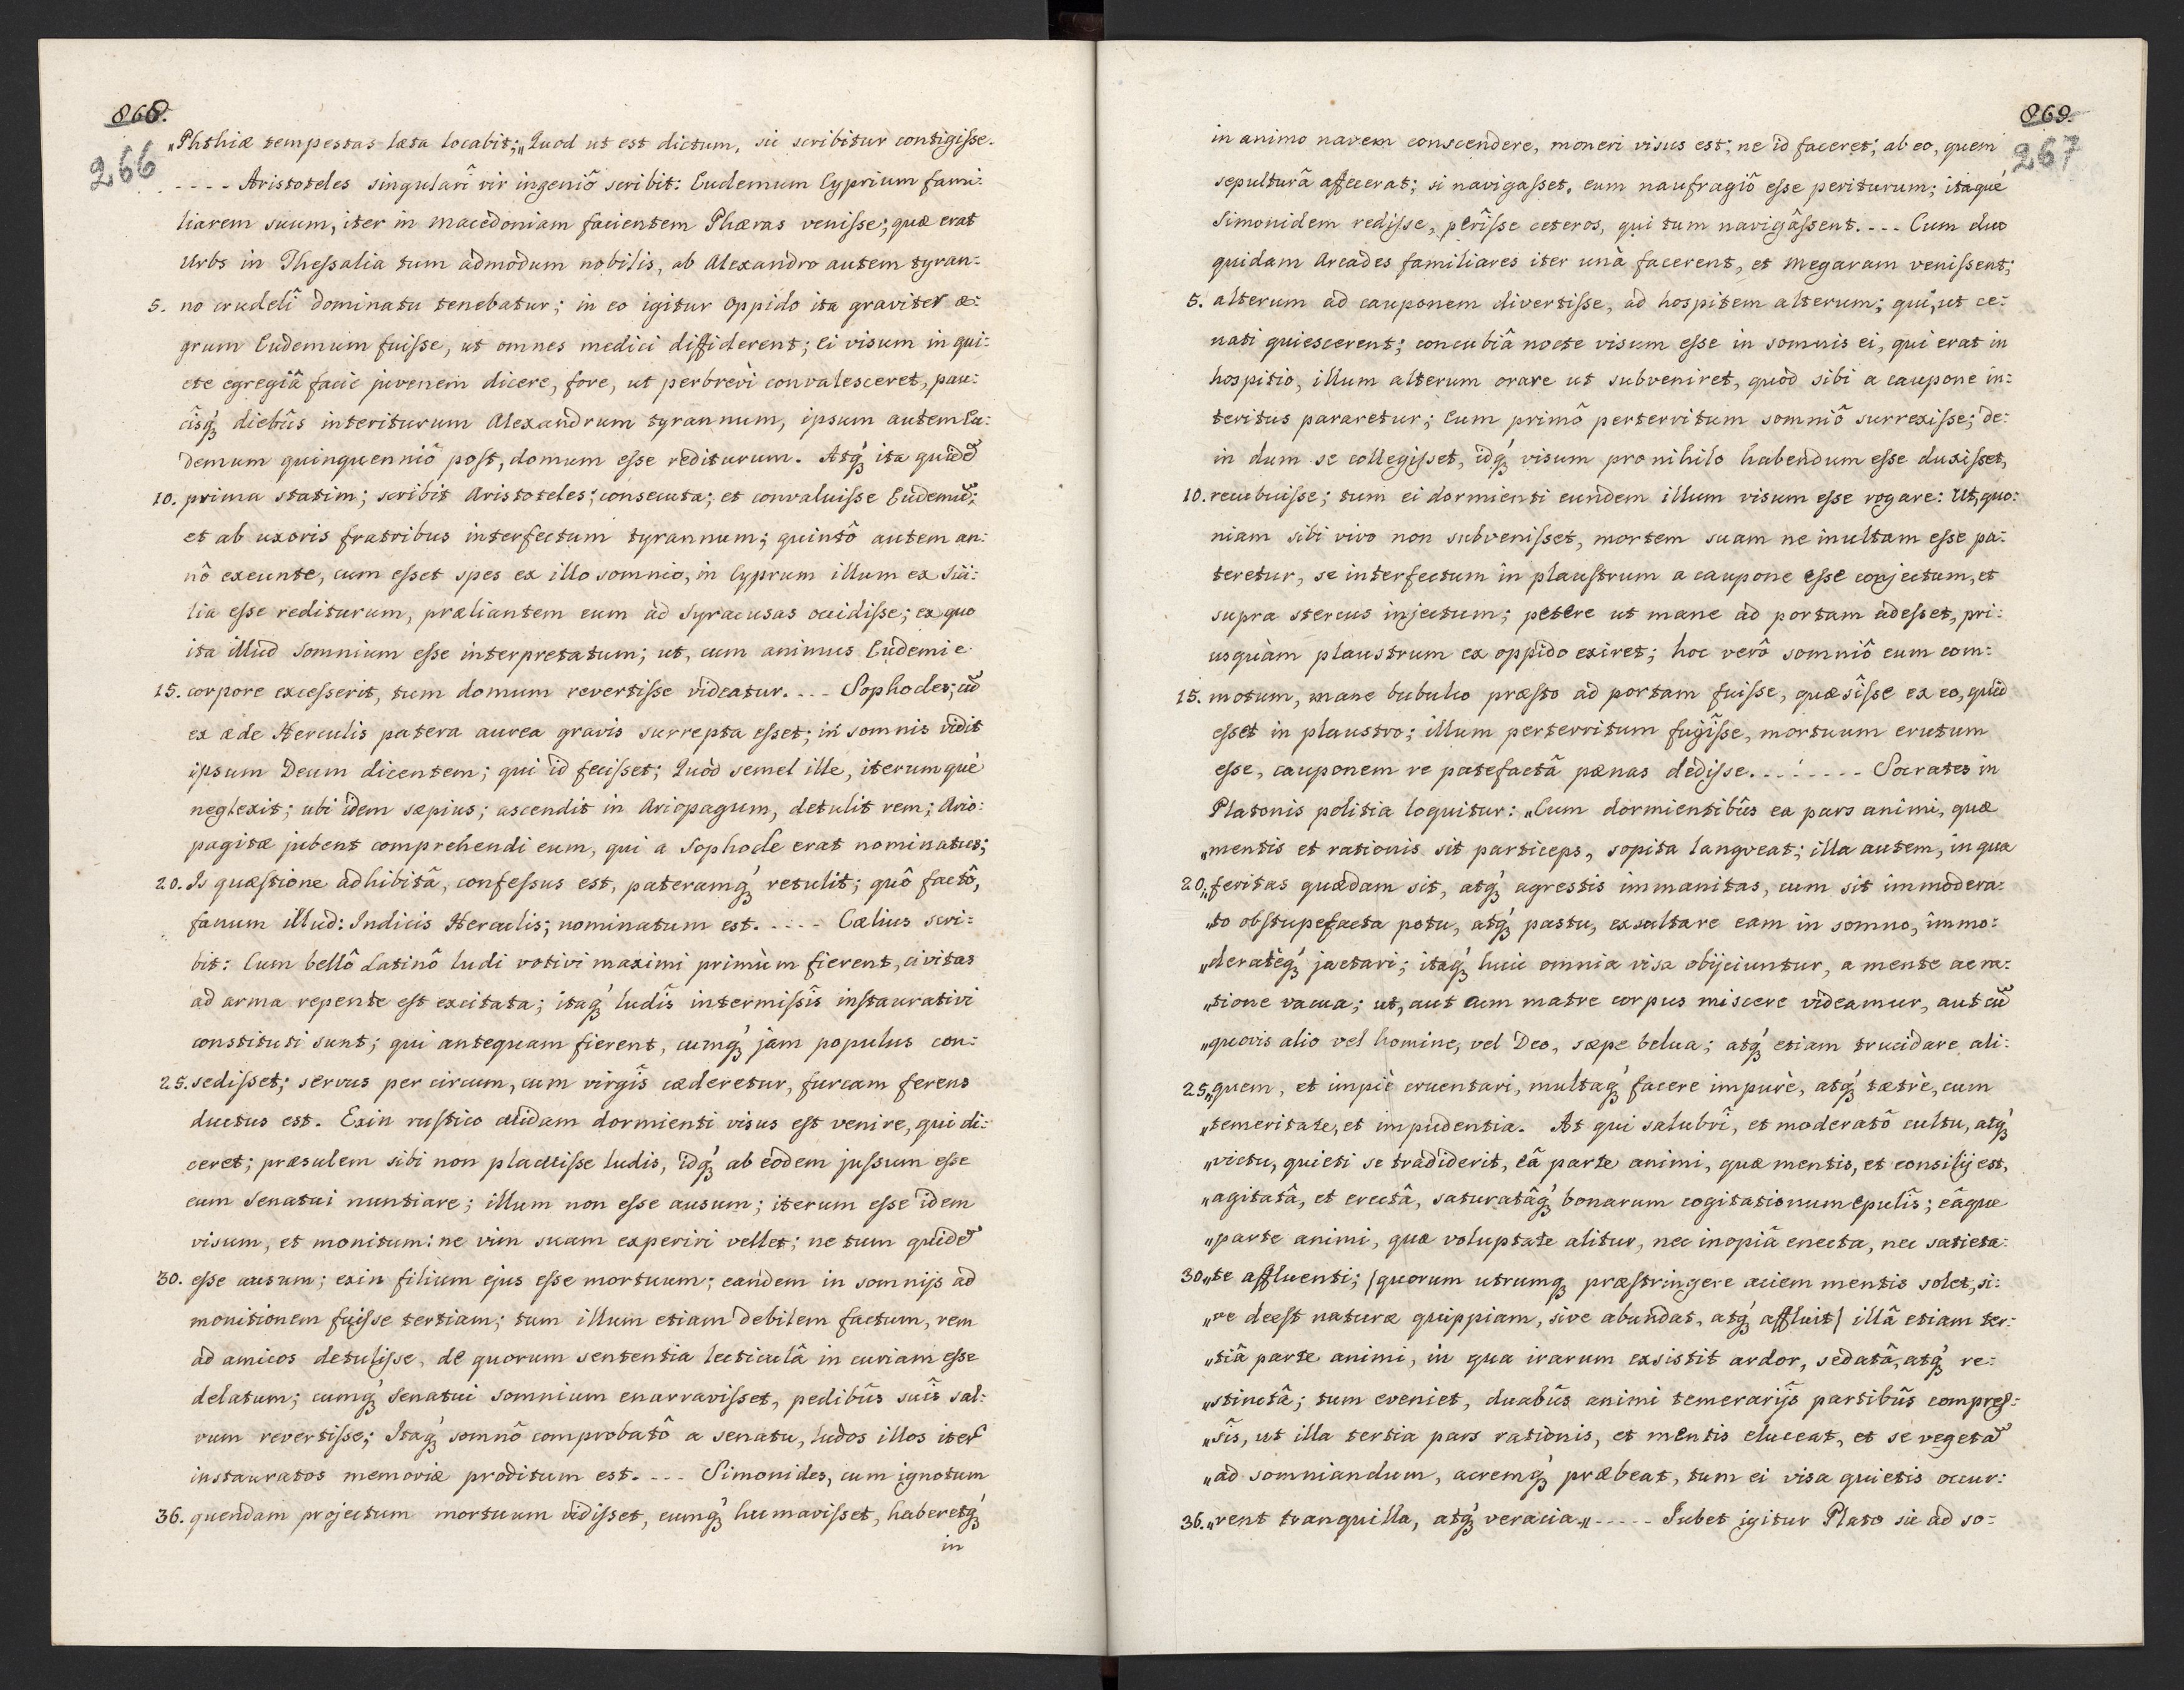 868.
266
„Phthiæ tempestas læta locabit;„ Quod ut est dictum, sic scribitur contigiſse.
---- Aristoteles singularî vir ingeniô scribit: Eudemum Cyprium fami:
liarem suum, iter in Macedoniam facientem Phæras veniſse; quæ erat
Urbs in Theſsalia tum admodum nobilis, ab Alexandro autem tyran:
5. no crudelî dominatu tenebatur; in eo igitur oppido ita graviter æ:
grum Eudemum fuiſse, ut omnes medici diffiderent; Ei visum in qui:
ete egregiâ facie juvenem dicere, fore, ut perbrevì convalesceret, pau:
cîsq́ʒ diebûs interiturum Alexandrum tyrannum, ipsum autem Eu:
demum quinquenniô post, domum eſse rediturum. Atq́ʒ ita quidẽ
10. prima statim; scribit Aristoteles; consecuta; et convaluiſse Eudemũ;
et ab uxoris fratribus interfectum tyrannum; quintô autem an:
nô exeunte, cum eſset spes ex illo somnio, in Cyprum illum ex Sici:
lia eſse rediturum, præliantem eum ad Syracusas occidiſse; ex quo
ita illud somnium eſse interpretatum; ut, cum animus Eudemi e
15. corpore exceſserit, tum domum revertiſse videatur. --- Sophocles; cũ
ex æde Herculis patera aurea gravis surrepta eſset; in somnis vidit
ipsum Deum dicentem; qui id feciſset; Quòd semel ille, iterumquè
neglexit; ubi idem sæpius; ascendit in Ariopagum, detulit rem; Ario:
pagitæ jubent comprehendi eum, qui a Sophocle erat nominatus;
20. Is quæstione adhibitâ, confeſsus est, pateramq́ʒ retulit; quô factô,
fanum illud: Indicis Herculis; nominatum est. ---- Cælius scri:
bit: Cum bellô Latinô ludi votivi maximi primùm fierent, civitas
ad arma repente est excitata; itaq́ʒ ludîs intermiſsîs instaurativi
constituti sunt; qui antequam fierent, cumq́ʒ jam populus con:
25. sediſset; servus per circum, cum virgîs cæderetur, furcam ferens
ductus est. Exin rustico alidam dormienti visus est venire, qui di:
ceret; præsulem sibi non placuiſse ludis, idq́ʒ ab eodem juſsum eſse
eum Senatui nuntiare; illum non eſse ausum; iterum eſse idem
visum, et monitum: ne vim suam experiri vellet; ne tum quidẽ
30. eſse ausum; exin filium ejus eſse mortuum; eandem in somnijs ad
monitionem fuiſse tertiam; tum illum etiam debilem factum, rem
ad amicos detuliſse, de quorum sententia lecticulâ in curiam eſse
delatum; cumq́ʒ Senatui somnium enarraviſset, pedibûs suîs sal:
vum revertiſse; Itaq́ʒ somnô comprobatô a senatu, ludos illos iterũ
instauratos memoriæ proditum est. --- Simonides, cum ignotum
36. quendam projectum mortuum vidiſset, eumq́ʒ humaviſset, haberetq́ʒ
in
869.
267
in animo navem conscendere, moneri visus est; ne id faceret; ab eo, quem
sepulturâ affecerat; si navigaſset, eum naufragiô eſse periturum; itaquè
Simonidem rediſse, perîſse ceteros, qui tum navigâſsent. --- Cum duo
quidam Arcades familiares iter unà facerent, et Megaram veniſsent;
5. alterum ad cauponem divertiſse, ad hospitem alterum; qui, ut ce:
nati quiescerent; concubiâ nocte visum eſse in somnis ei, qui erat in
hospitio, illum alterum orare ut subveniret, quòd sibi a caupone in:
teritus pararetur; Eum primô perterritum somniô surrexiſse; de:
in dum se collegiſset, idq́ʒ visum pro nihilo habendum eſse duxiſset,
10. recubuiſse; tum ei dormienti eundem illum visum eſse rogare: Ut, quo:
niam sibi vivo non subveniſset, mortem suam ne inultam eſse pa:
teretur, se interfectum in plaustrum a caupone eſse conjectum, et
supra stercus injectum; petere ut mane ad portam adeſset, pri:
usquàm plaustrum ex oppido exiret; hoc verô somniô eum com:
15. motum, mane bubulco præsto ad portam fuiſse, quæsîſse ex eo, quid
eſset in plaustro; illum perterritum fugîſse, mortuum erutum
eſse, cauponem re patefactâ pænas dediſse. -------- Socrates in
Platonis politia loquitur: „Cum dormientibûs ea pars animi, quæ
„mentis et rationis sit particeps, sopita langveat; illa autem, in qua
20. „feritas quædam sit, atq́ʒ agrestis immanitas, cum sit immodera:
„to obstupefacta potu, atq́ʒ pastu, exsultare eam in somno, immo:
„deratèq́ʒ jactari; itaq́ʒ huic omnia visa obijciuntur, a mente ac ra:
„tione vacua; ut, aut cum matre corpus miscere videamur, aut cũ
„quovis alio vel homine, vel Deo, sæpe belua; atq́ʒ etiam trucidare ali:
25. „quem, et impiè cruentari, multaq́ʒ facere impurè, atq́ʒ tætrè, cum
„temeritate, et impudentia. At qui salubrî, et moderatô cultu, atq́ʒ
„victu, quieti se tradiderit, eâ parte animi, quæ mentis, et consilij est,
„agitatâ, et erectâ, saturatâq́ʒ bonarum cogitationum epulîs; eâque
„parte animi, quæ voluptate alitur, nec inopiâ enecta, nec satieta:
30. „te affluenti; (quorum utrumqʒ præstringere aciem mentis solet, si:
„ve deest naturæ quippiam, sive abundat, atq́ʒ affluit) illâ etiam ter:
„tiâ parte animi, in qua irarum exsistit ardor, sedatâ, atq́ʒ re:
„stinctâ; tum eveniet, duabûs animi temerarijs partibûs compreſ:
„sîs, ut illa tertia pars rationis, et mentis eluceat, et se vegetã
„ad somniandum, acremq́ʒ præbeat, tum ei visa quietis occur:
36. „rent tranquilla, atq́ʒ veracia.„ ----- Jubet igitur Plato sic ad so: